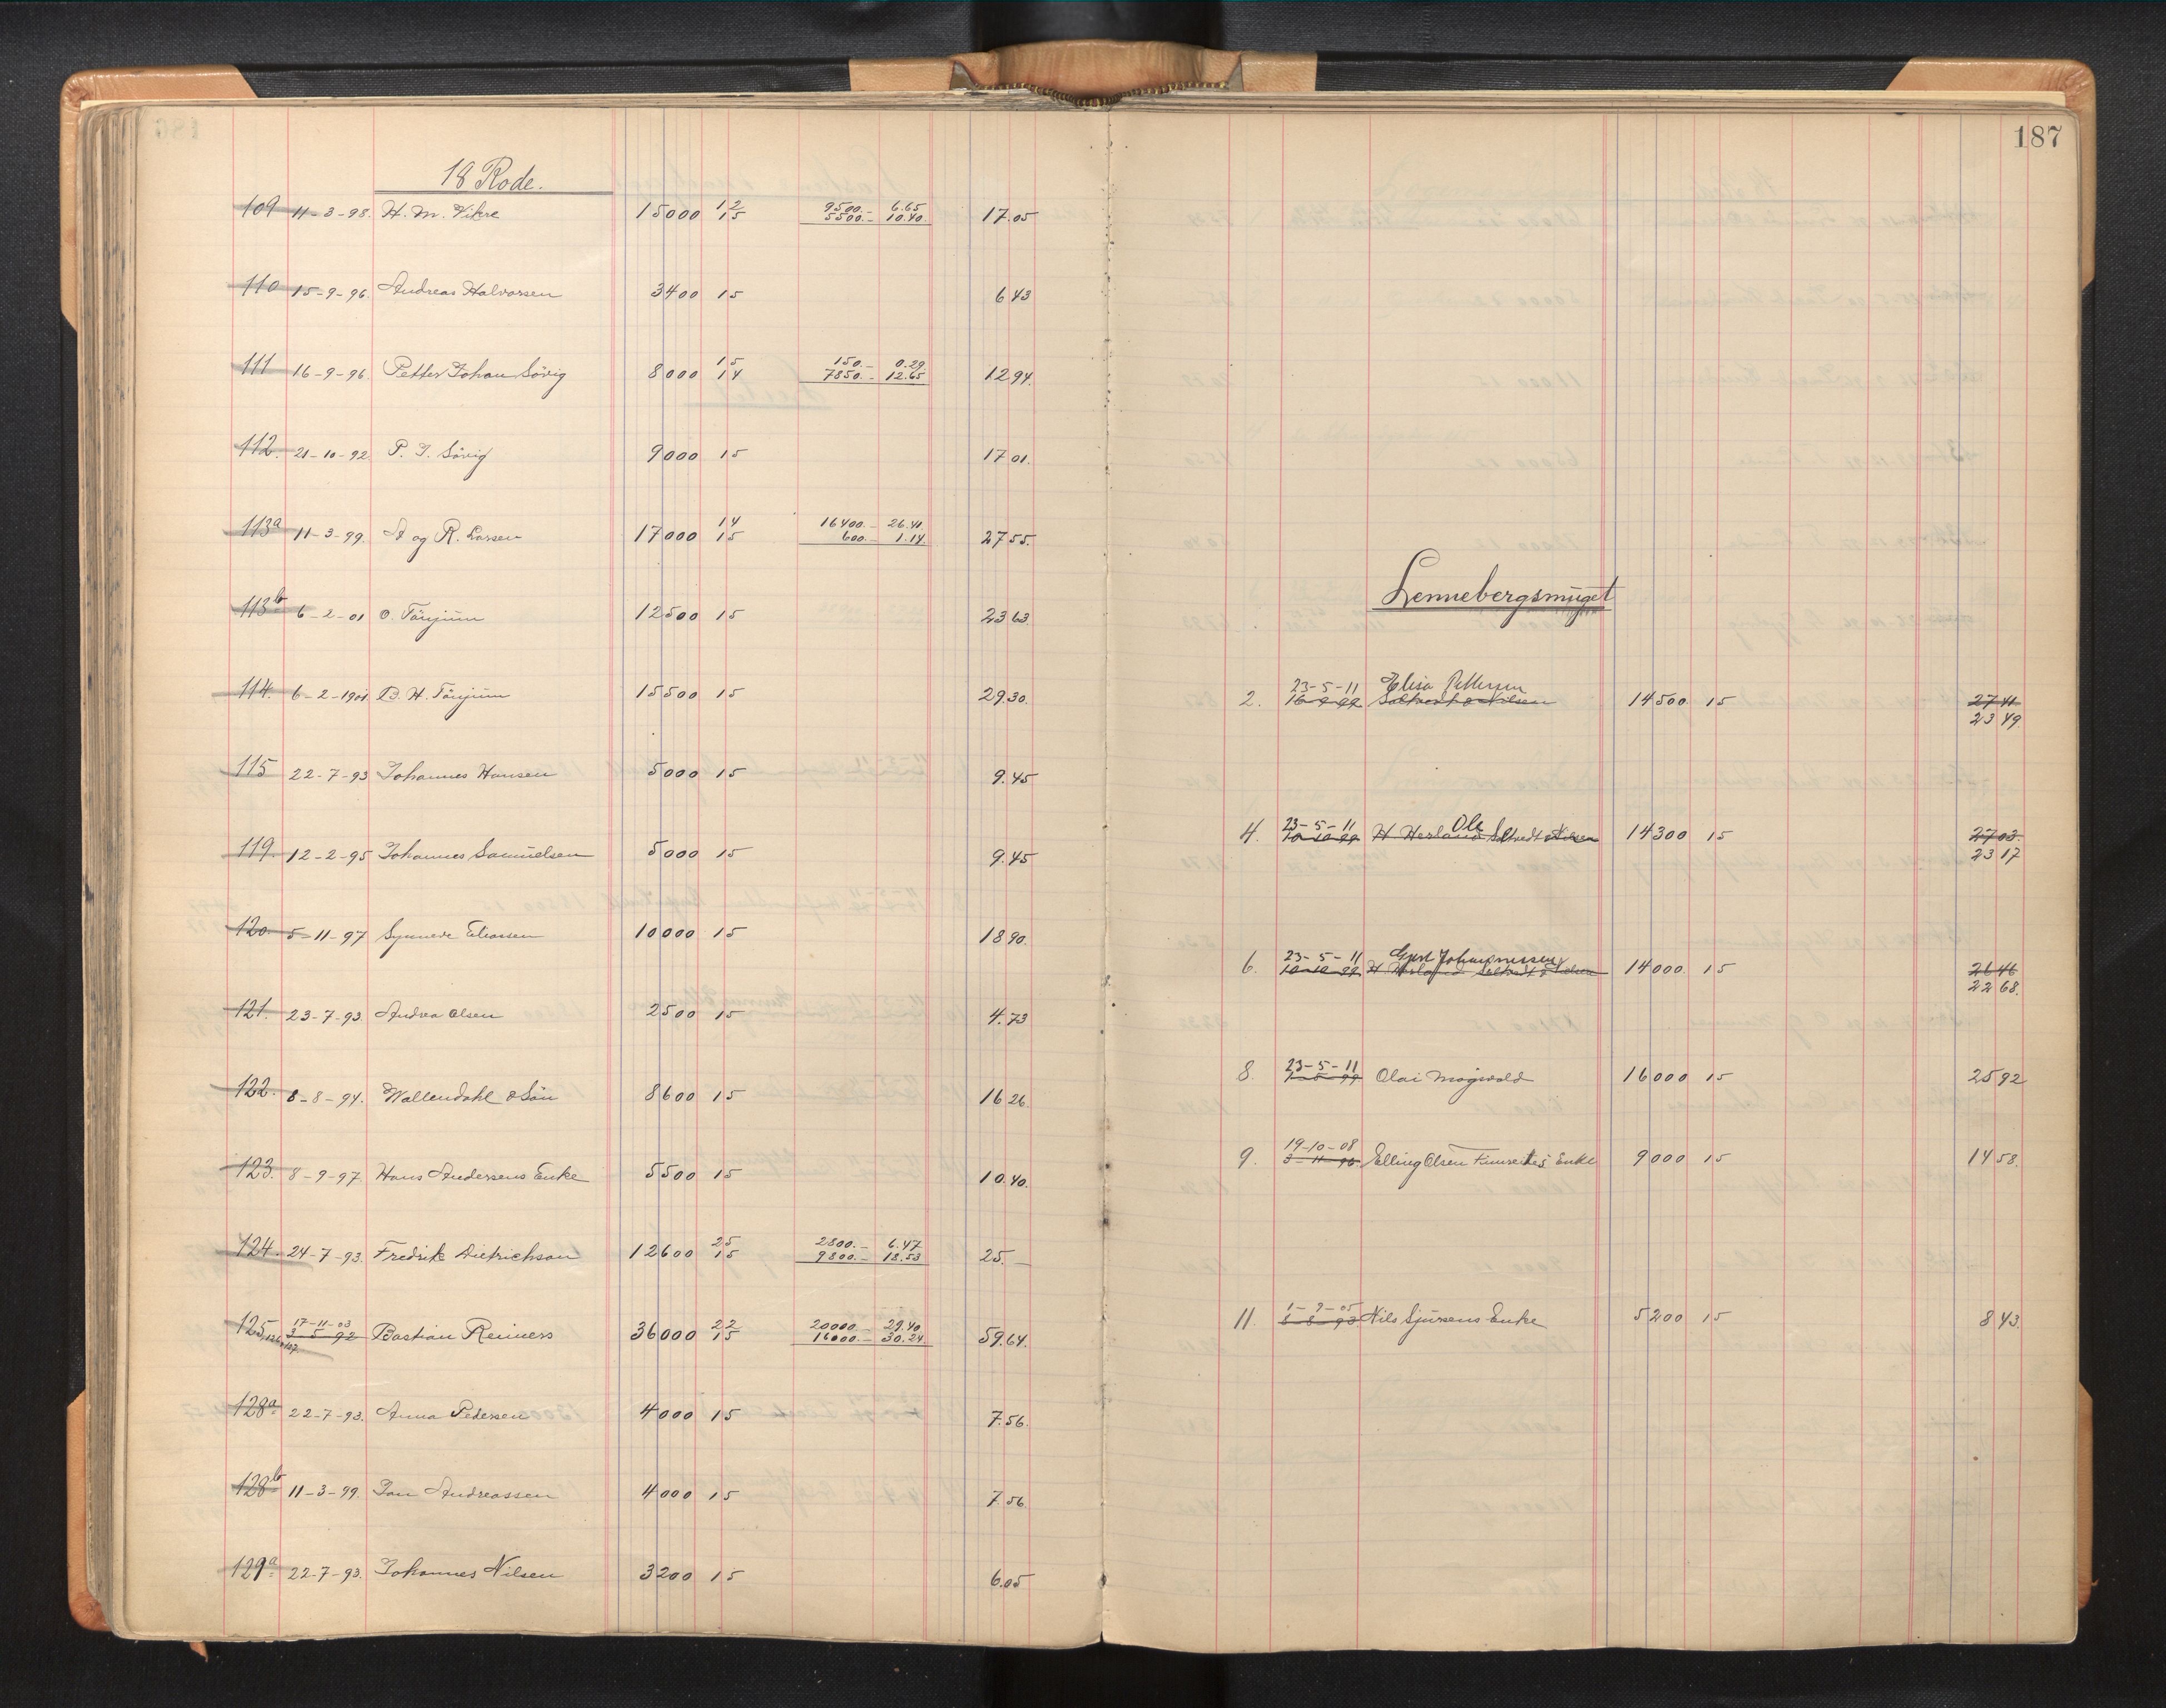 18 Rode.
109 11-3-98. H. M. Vikre 15000 12 15 9500.- 6.65 5500.- 10.40. 17.05
110 15-9-96. Andreas Halvorsen 3400 15 6 43
111 16-9-96. Petter Johan Sövig 8000 15 14 150.- 0.29 7850.- 12.65 12 94.
112. 21-10-92 P. J. Sövig 9000 15 17 01.
113a 11-3-99. A og R. Larsen 17000 14 15 16400.- 26.41 600.- 1.14 27 55.
113b 6-2-01 O. Tönjum 12500 15 23 63.
114. 6-2-1901 B. H. Tönjum 15500 15 29.30.
115 22-7-93 Johannes Hansen 5000 15 9.45
119. 12-2-95 Johannes Samuelsen 5000 15 9.45
120. 5-11-97 Synneve 10000 15 18 90.
121. 23-7-93. Andrea Olsen 2500 15 4.73
122. 8-8-94. Wallendahl & Sön 8600 15 16 26.
123. 8-9-97. Hans Andersens Enke 5500 15 10.40.
124. 24-7-93. Fredrik Dietrichson 12600 25 15 2800.- 6.47 9800.- 18.53 25.-
125, 126, 127 17-11-03 3-5-92 Bastian Reimers 36000 22 15 20000.- 29.40 16000.- 30.24 59.64.
128a 22-7-93. Anna Pedersen 4000 15 7.56.
128b 11-3-99. Jan Andreassen 4000 15 7.56
129a 22-7-93. Johannes Nilsen 3200 15 6.05
187
Lennebergsmuget
23-5-11 Elisa Pettersen
2. 16-9-99 Saltvedt & Nilsen 14500 15 27 41
23 49
23-5-11 Ole
4. 10-10-99 H Herland Saltvedt & Nilsen 14300 15 27 03.
23 17
23-5-11 Gjert Johannessen
6. 10-10-99 H Herland Saltvedt & Nilsen 14000. 15 26 46
22 68.
23-5-11
8. 99 Olai Mogwold 16000 15 25 92
19-10-08
9. 3-11-96 Elling Olsen Enke 9000 15 14 58.
1-9-05
11. 8-8-93 Nils Sjursens Enke 5200 15 8 43.